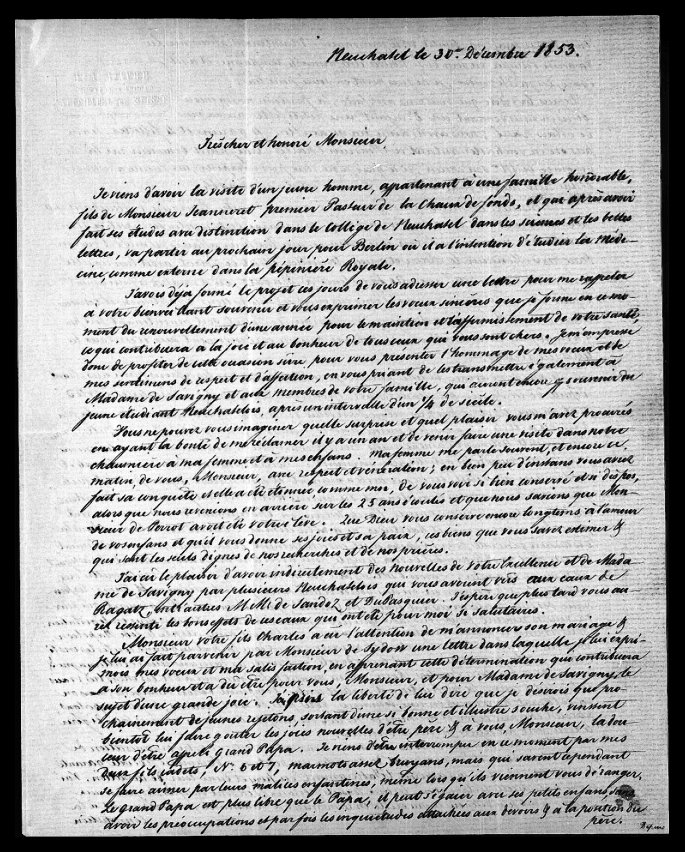 Neuchatel le 30.me Décembre 1853.
Très cher et honoré Monsieur,
Je viens d'avoir la visite d'un jeune homme, appartenant à une famille honorable,
fils de Monsieur Jeanneret premier Pasteur de la Chaux de fonds, et qui après avoir
fait ses études avec distinction dans le Collège de Neuchatel dans les sciences et les belles
lettres, va partir au prochain jour pour Berlin où il a l'intention d'étudier la Méde-
cine, comme externe dans la pépinière Royale.
J'avois déja formé le projet ces jours de vous adresser une lettre pour me rappeler
à votre bienveillant souvenir et vous exprimer les voeux sincères que je forme en ce mo-
ment du renouvellement d'une année pour le maintien et l'affermissement de votre santé,
ce qui contribuera à la joie et au bonheur de tous ceux qui vous sont chers. Je m'empresse
donc de profiter de cette occasion sûre pour vous présenter l'hommage de mes voeux et de
mes sentimens de respect et d'affection, en vous priant de les transmettre également à
Madame de Savigny et aux membres de votre famille, qui aiment encore le souvenir du
jeune étudiant Neuchatelois, après un intervalle d'un 1/4 de siècle.
Vous ne pouvez vous imaginer quelle surprise et quel plaisir vous m'avez procurés
en ayant la bonté de me réclamer il y a un an et de venir faire une visite dans notre
chaumière à ma femme et à mes enfans. Ma femme me parle souvent, et encore ce
matin, de vous, Monsieur, avec respect et vénération; en bien peu d'instans vous avez
fait sa conquête et elle a été étonnée comme moi, de vous voir si bien conservé et si dispos,
alors que nous revenions en arrière sur les 25 ans écoulés et que nous savions que Mon-
sieur de Perrot avoit été votre élève. Que Dieu vous conserve encore longtems à l'amour
de vos enfans et qu'il vous donne ses joies et sa paix, ces biens que vous savez estimer &
qui sont les seuls dignes de nos recherches et de nos prières.
J'ai eu le plaisir d'avoir indirectement des nouvelles de votre Excellence et de Mada
me de Savigny par plusieurs Neuchatelois qui vous avoient vûs aux eaux de
Ragatz, entr'autres MM. de Sandoz et DuPasquier. J'espère que plus tard vous au-
rez ressenti les bons effets de ces eaux qui ont été pour moi si salutaires.
Monsieur votre fils Charles a eu l'attention de m'annoncer son mariage &
je lui ai fait parvenir par Monsieur de Sydow une lettre dans laquelle je lui expri-
mois mes voeux et ma satisfaction, en apprenant cette détermination qui contribuera
à son bonheur et a du être pour vous, Monsieur, et pour Madame de Savigny, le
sujet d'une grande joie. Je pris la liberté de lui dire que je desirois que pro-
chainement de jeunes rejetons, sortant d'une si bonne et illustre souche, vinssent
bientôt lui faire goûter les joies nouvelles d'être père & à vous, Monsieur, la dou-
ceur d'être appelé Grand Papa. Je viens d'être interrompu en ce moment par mes
deux fils cadets, No. 6 et 7, marmots assez bruyans, mais qui savent cependant
se faire aimer par leurs malices enfantines, même lorsqu'ils viennent vous déranger.
Le grand Papa est plus libre que le Papa, il peut s'égaier avec ses petits enfans sans
avoir les préoccupations et par fois les inquiétudes attachées aux devoirs & à la position du
père.